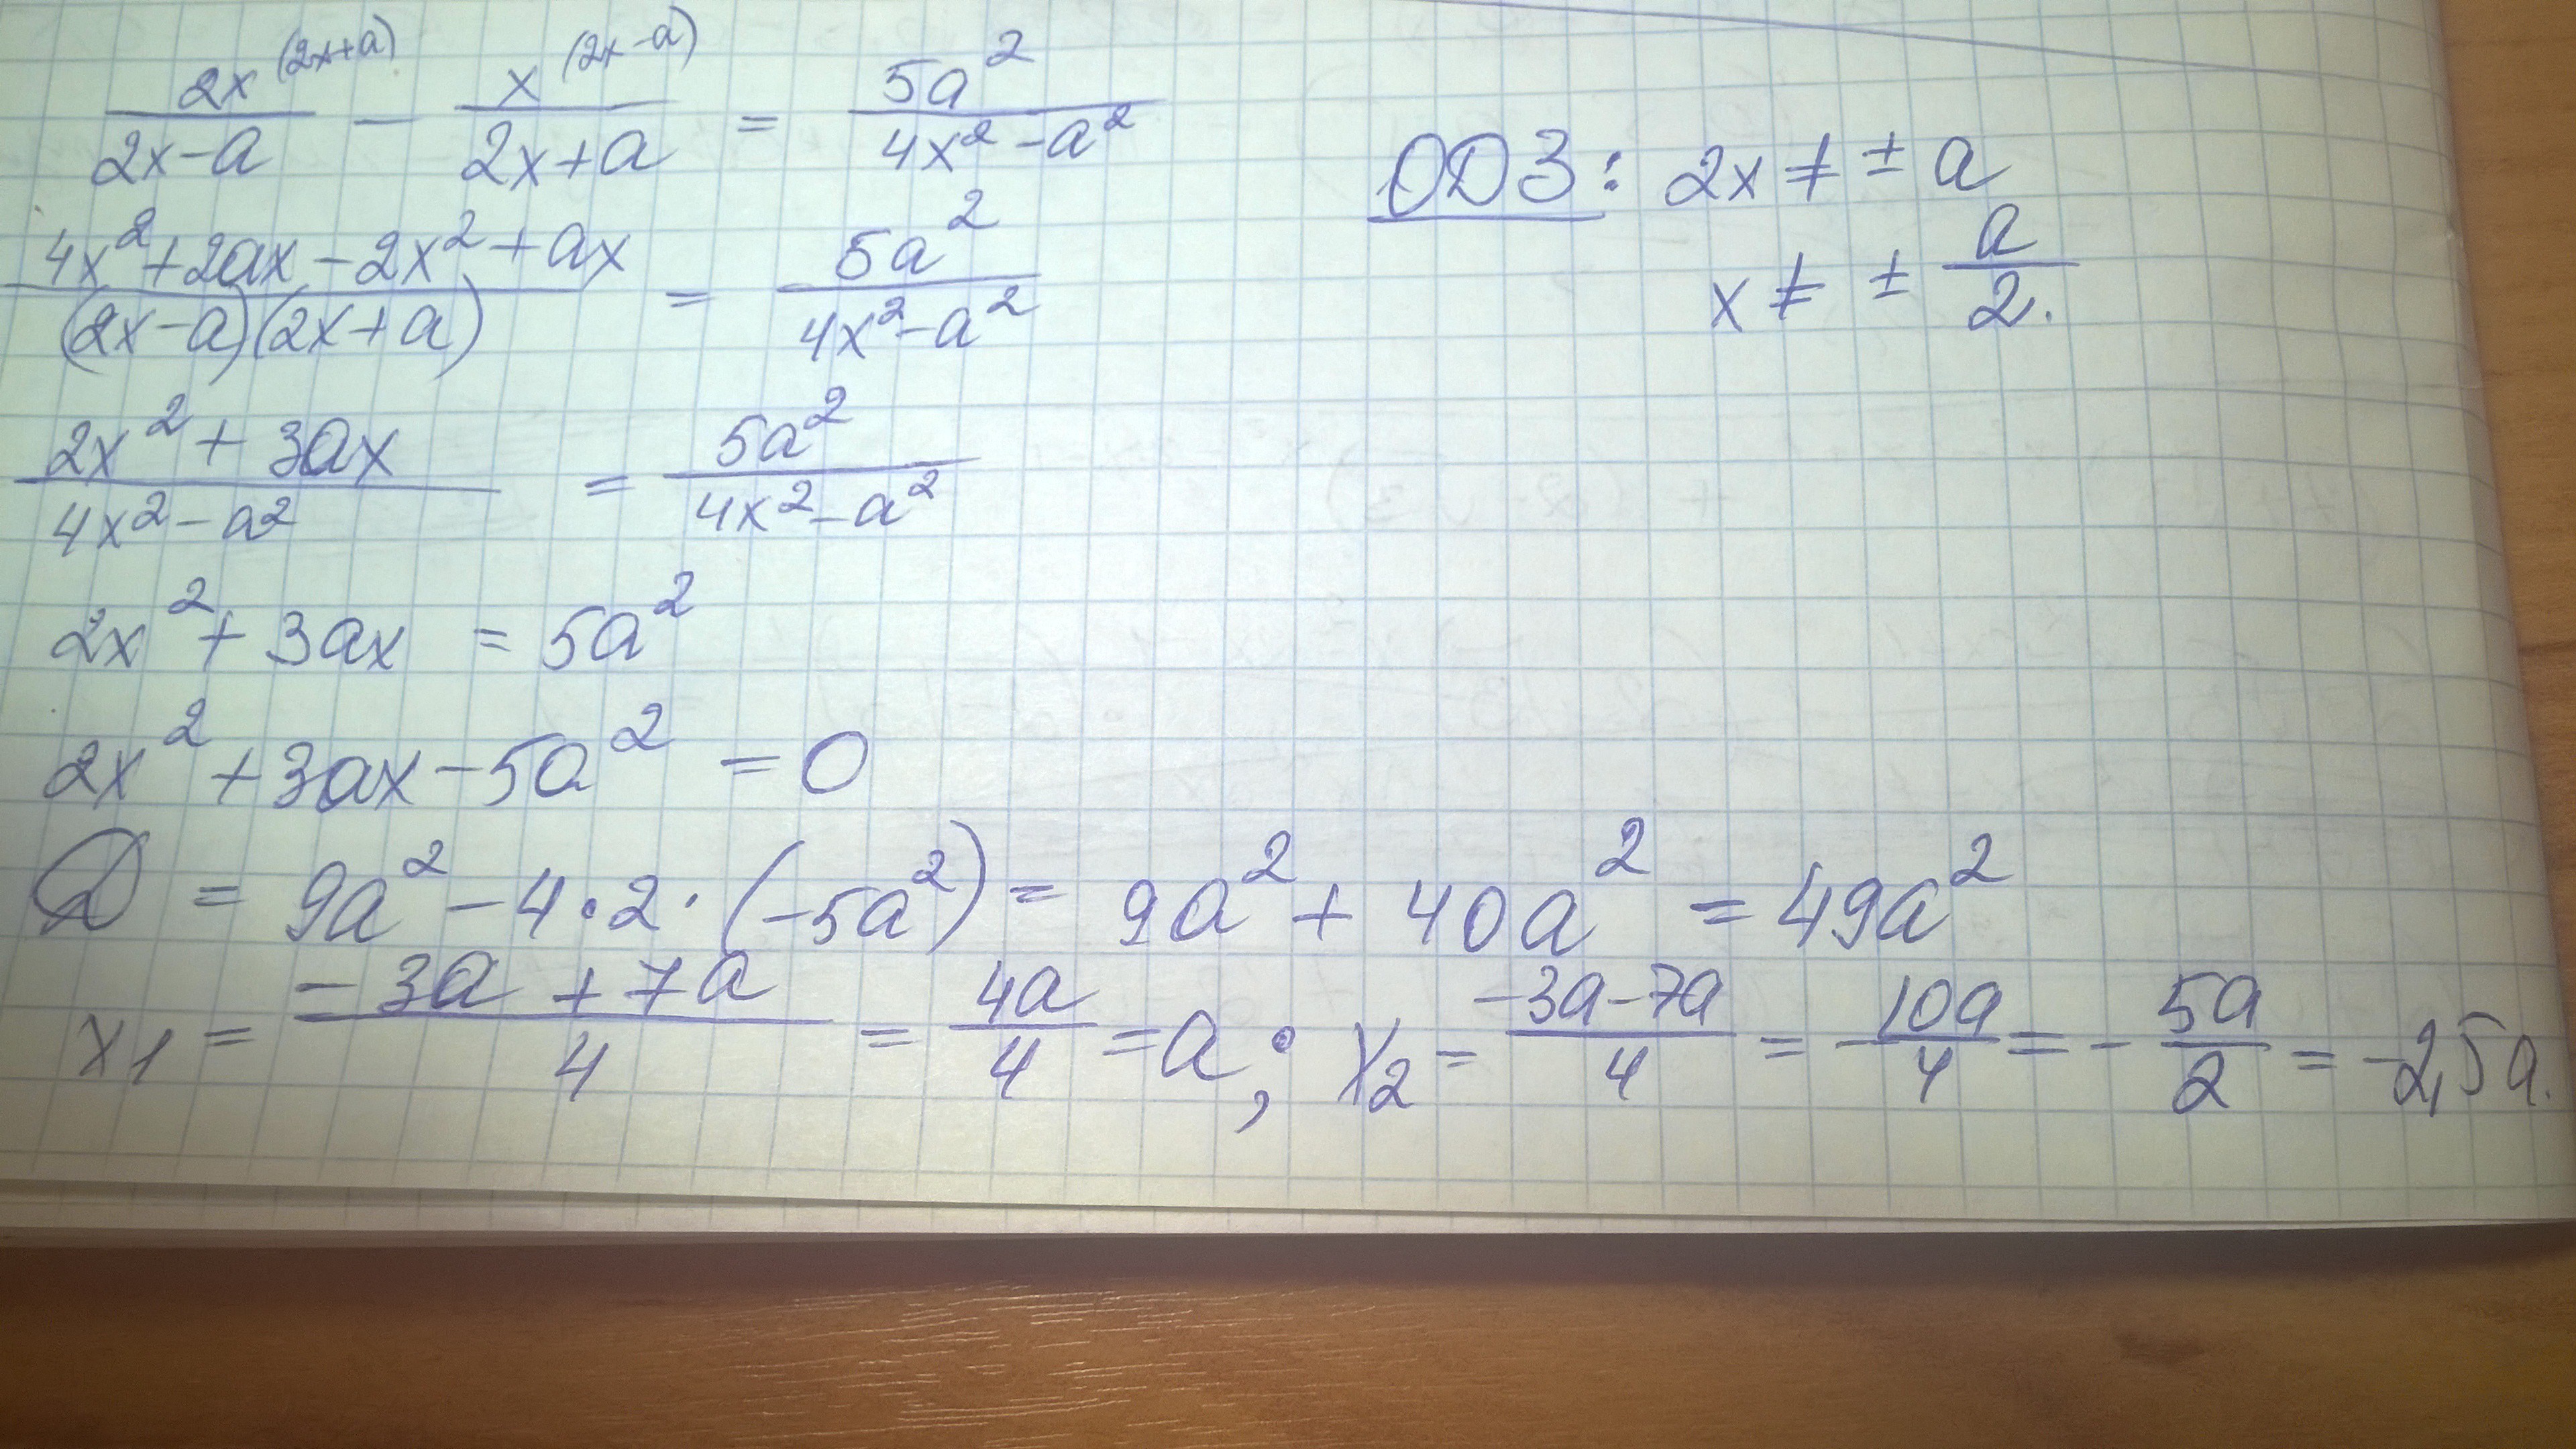 2x^(2x+a) / (2x-a) - x^(2x-a) / (2x+a) = 5a² / (4x²-a²)
ОДЗ: 2x ≠ ± a
x ≠ ± a/2.
(4x²+2ax-2x²+ax) / ((2x-a)(2x+a)) = 5a² / (4x²-a²)
(2x² + 3ax) / (4x²-a²) = 5a² / (4x²-a²)
2x² + 3ax = 5a²
2x² + 3ax - 5a² = 0
D = 9a² - 4·2·(-5a²) = 9a² + 40a² = 49a²
x₁ = (-3a + 7a) / 4 = 4a/4 = a; x₂ = (-3a-7a) / 4 = -10a/4 = -5a/2 = -2,5a.